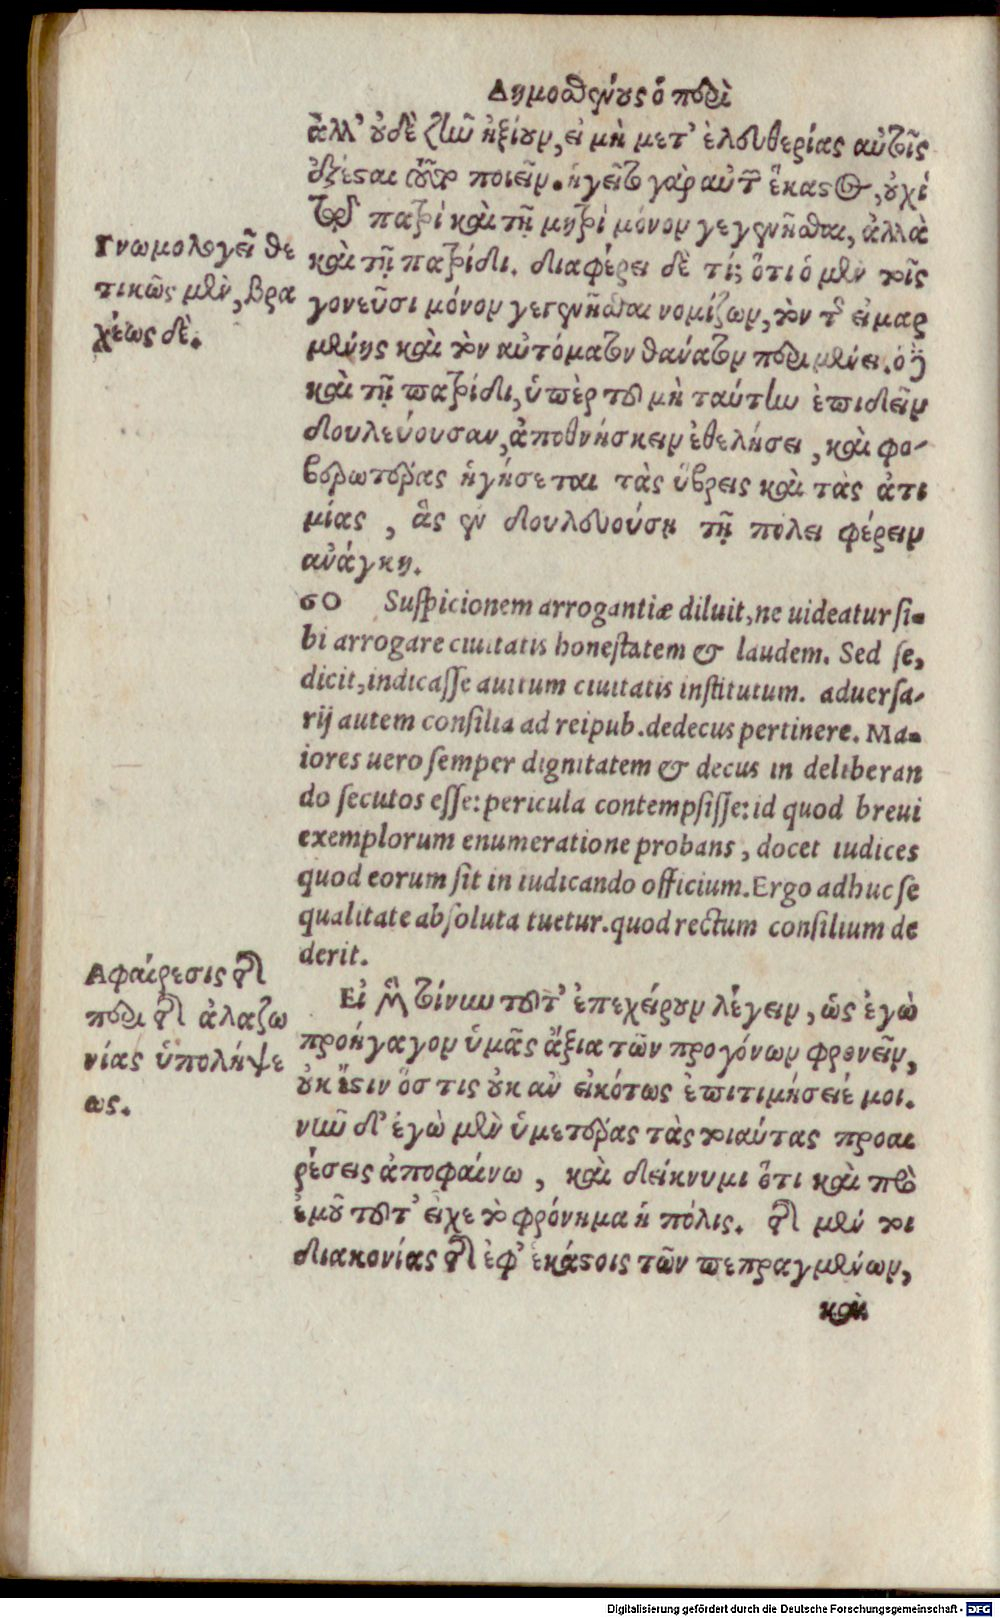 Δημοσθένους ὁ περὶ
ἀλλ' οὐδὲ ζῆν ἠξίουν, εἰ μὴ μετ' ἐλευθερίας αὐτοῖς
ἐξέσται τοῦτο ποιεῖν. ἡγεῖτο γὰρ αὐτῶν ἕκαστος, οὐχὶ
τῷ πατρὶ καὶ τῇ μητρὶ μόνον γεγενῆσθαι, ἀλλὰ
Γνωμολογεῖ θε
τικῶς μὲν, βρα
χέως δὲ.
καὶ τῇ πατρίδι. διαφέρει δὲ τί; ὅτι ὁ μὲν τοῖς
γονεῦσι μόνον γεγενῆσθαι νομίζων, τὸν τῆς εἱμαρ
μένης καὶ τὸν αὐτόματον θάνατον περιμένει. ὁ δὲ
καὶ τῇ πατρίδι, ὑπὲρ τοῦ μὴ ταύτην ἐπιδεῖν
δουλεύουσαν, ἀποθνήσκειν ἐθελήσει, καὶ φο-
βερωτέρας ἡγήσεται τὰς ὕβρεις καὶ τὰς ἀτι
μίας, ἃς ἐν δουλευούσῃ τῇ πόλει φέρειν
ἀνάγκη.
60 Suspicionem arrogantiæ diluit, ne uideatur si-
bi arrogare ciuitatis honestatem & laudem. Sed se,
dicit, indicasse auitum ciuitatis institutum. aduersa-
rij autem consilia ad reipub. dedecus pertinere. Ma-
iores uero semper dignitatem & decus in deliberan
do secutos esse: pericula contempsisse: id quod breui
exemplorum enumeratione probans, docet iudices
quod eorum sit in iudicando officium. Ergo adhuc se
qualitate absoluta tuetur. quod rectum consilium de
derit.
Ἀφαίρεσις τῆς
περὶ τῆς ἀλαζο
νίας ὑπολήψε
ως.
Εἰ μὲν τοίνυν τοῦτ' ἐπεχείρουν λέγειν, ὡς ἐγὼ
προήγαγον ὑμᾶς ἄξια τῶν προγόνων φρονεῖν,
οὐκ ἔστιν ὅστις οὐκ ἂν εἰκότως ἐπιτιμήσειέ μοι.
νῦν δ' ἐγὼ μὲν ὑμετέρας τὰς τοιαύτας προαι
ρέσεις ἀποφαίνω, καὶ δείκνυμι ὅτι καὶ πρὸ
ἐμοῦ τοῦτ' εἶχε τὸ φρόνημα ἡ πόλις. τῆς μέν τοι
διακονίας τῆς ἐφ' ἑκάστοις τῶν πεπραγμένων,
καὶ
Digitalisierung gefördert durch die Deutsche Forschungsgemeinschaft - DFG